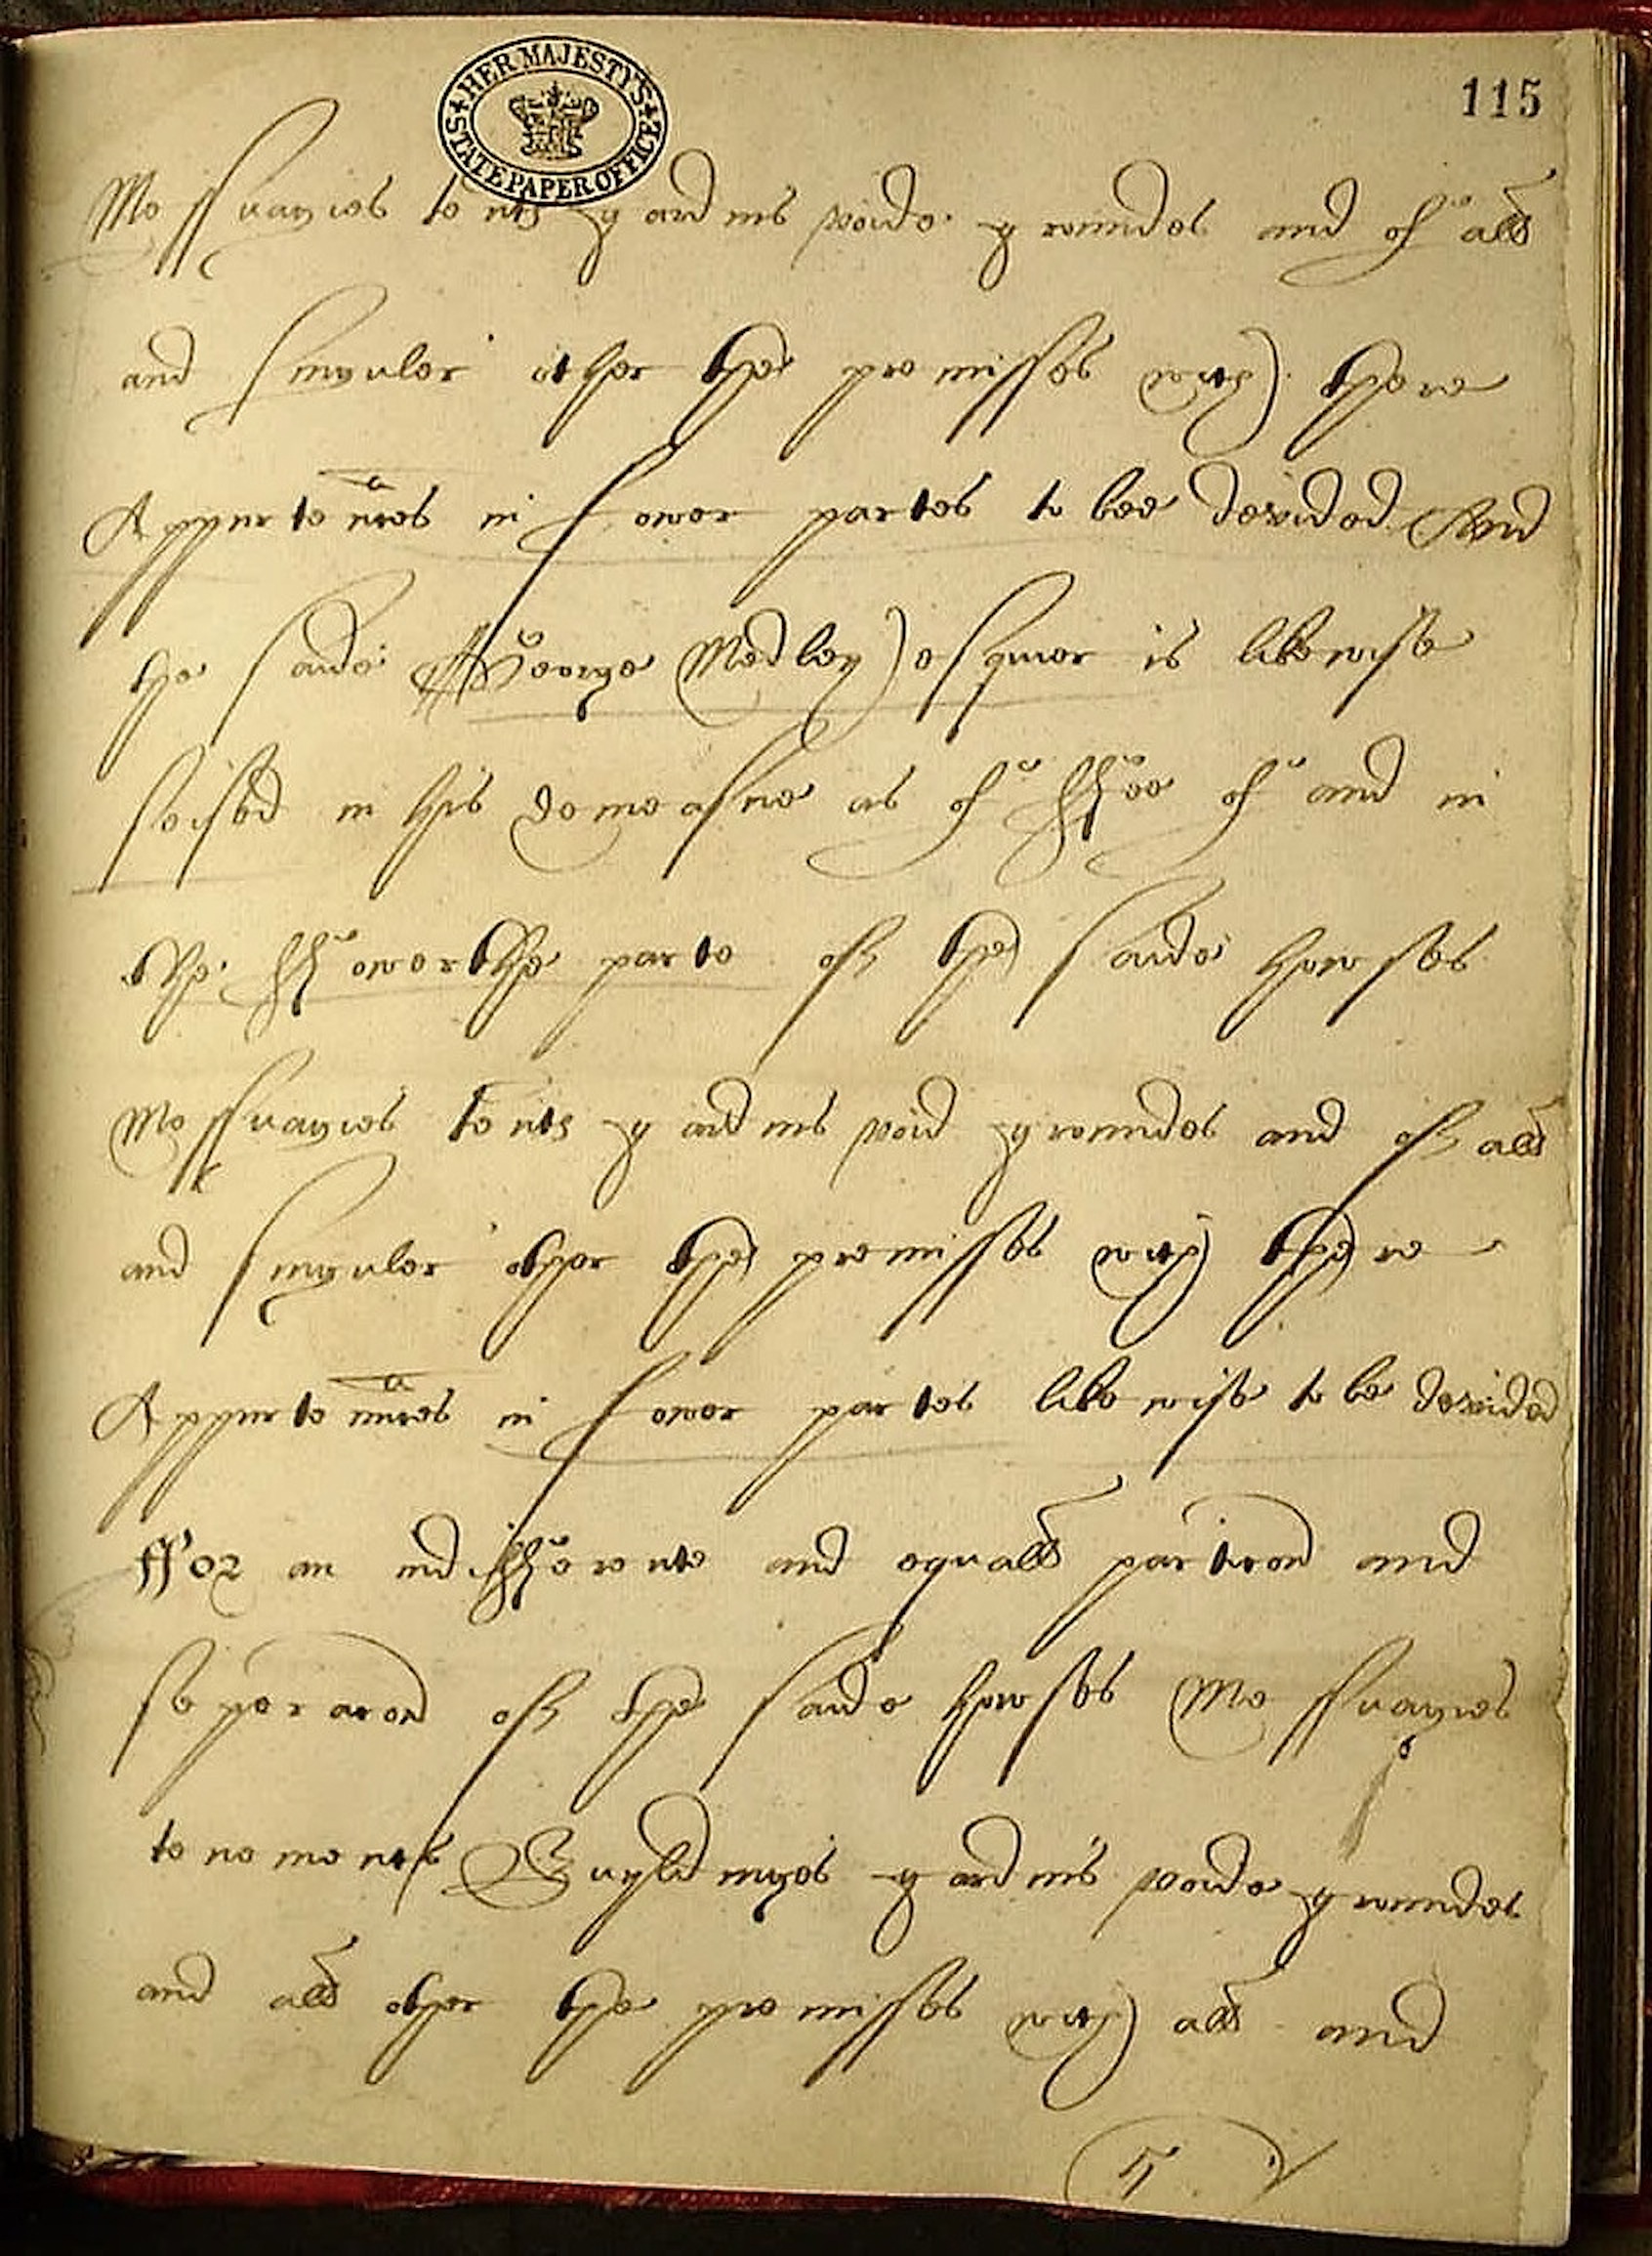 HER MAJESTY'S STATE PAPER OFFICE
115
Messuagies tents gardins voide growndes and of all
and singuler other the premisses with there
Appurtenances in fower partes to bee devided And
the saide George Medley esquier is likewise
seised in his demeasne as of ffee of and in
the ffowerthe parte of the saide howses
Messuagies tents gardins void growndes and of all
and singuler other the premisses with there
Appurtenances in fower partes likewise to be devided
ffor an indifferente and equall particon and
seperacon of the saide howses Messuagies
tenements Buyldinges gardins voide growndes
and all other the premisses with all and